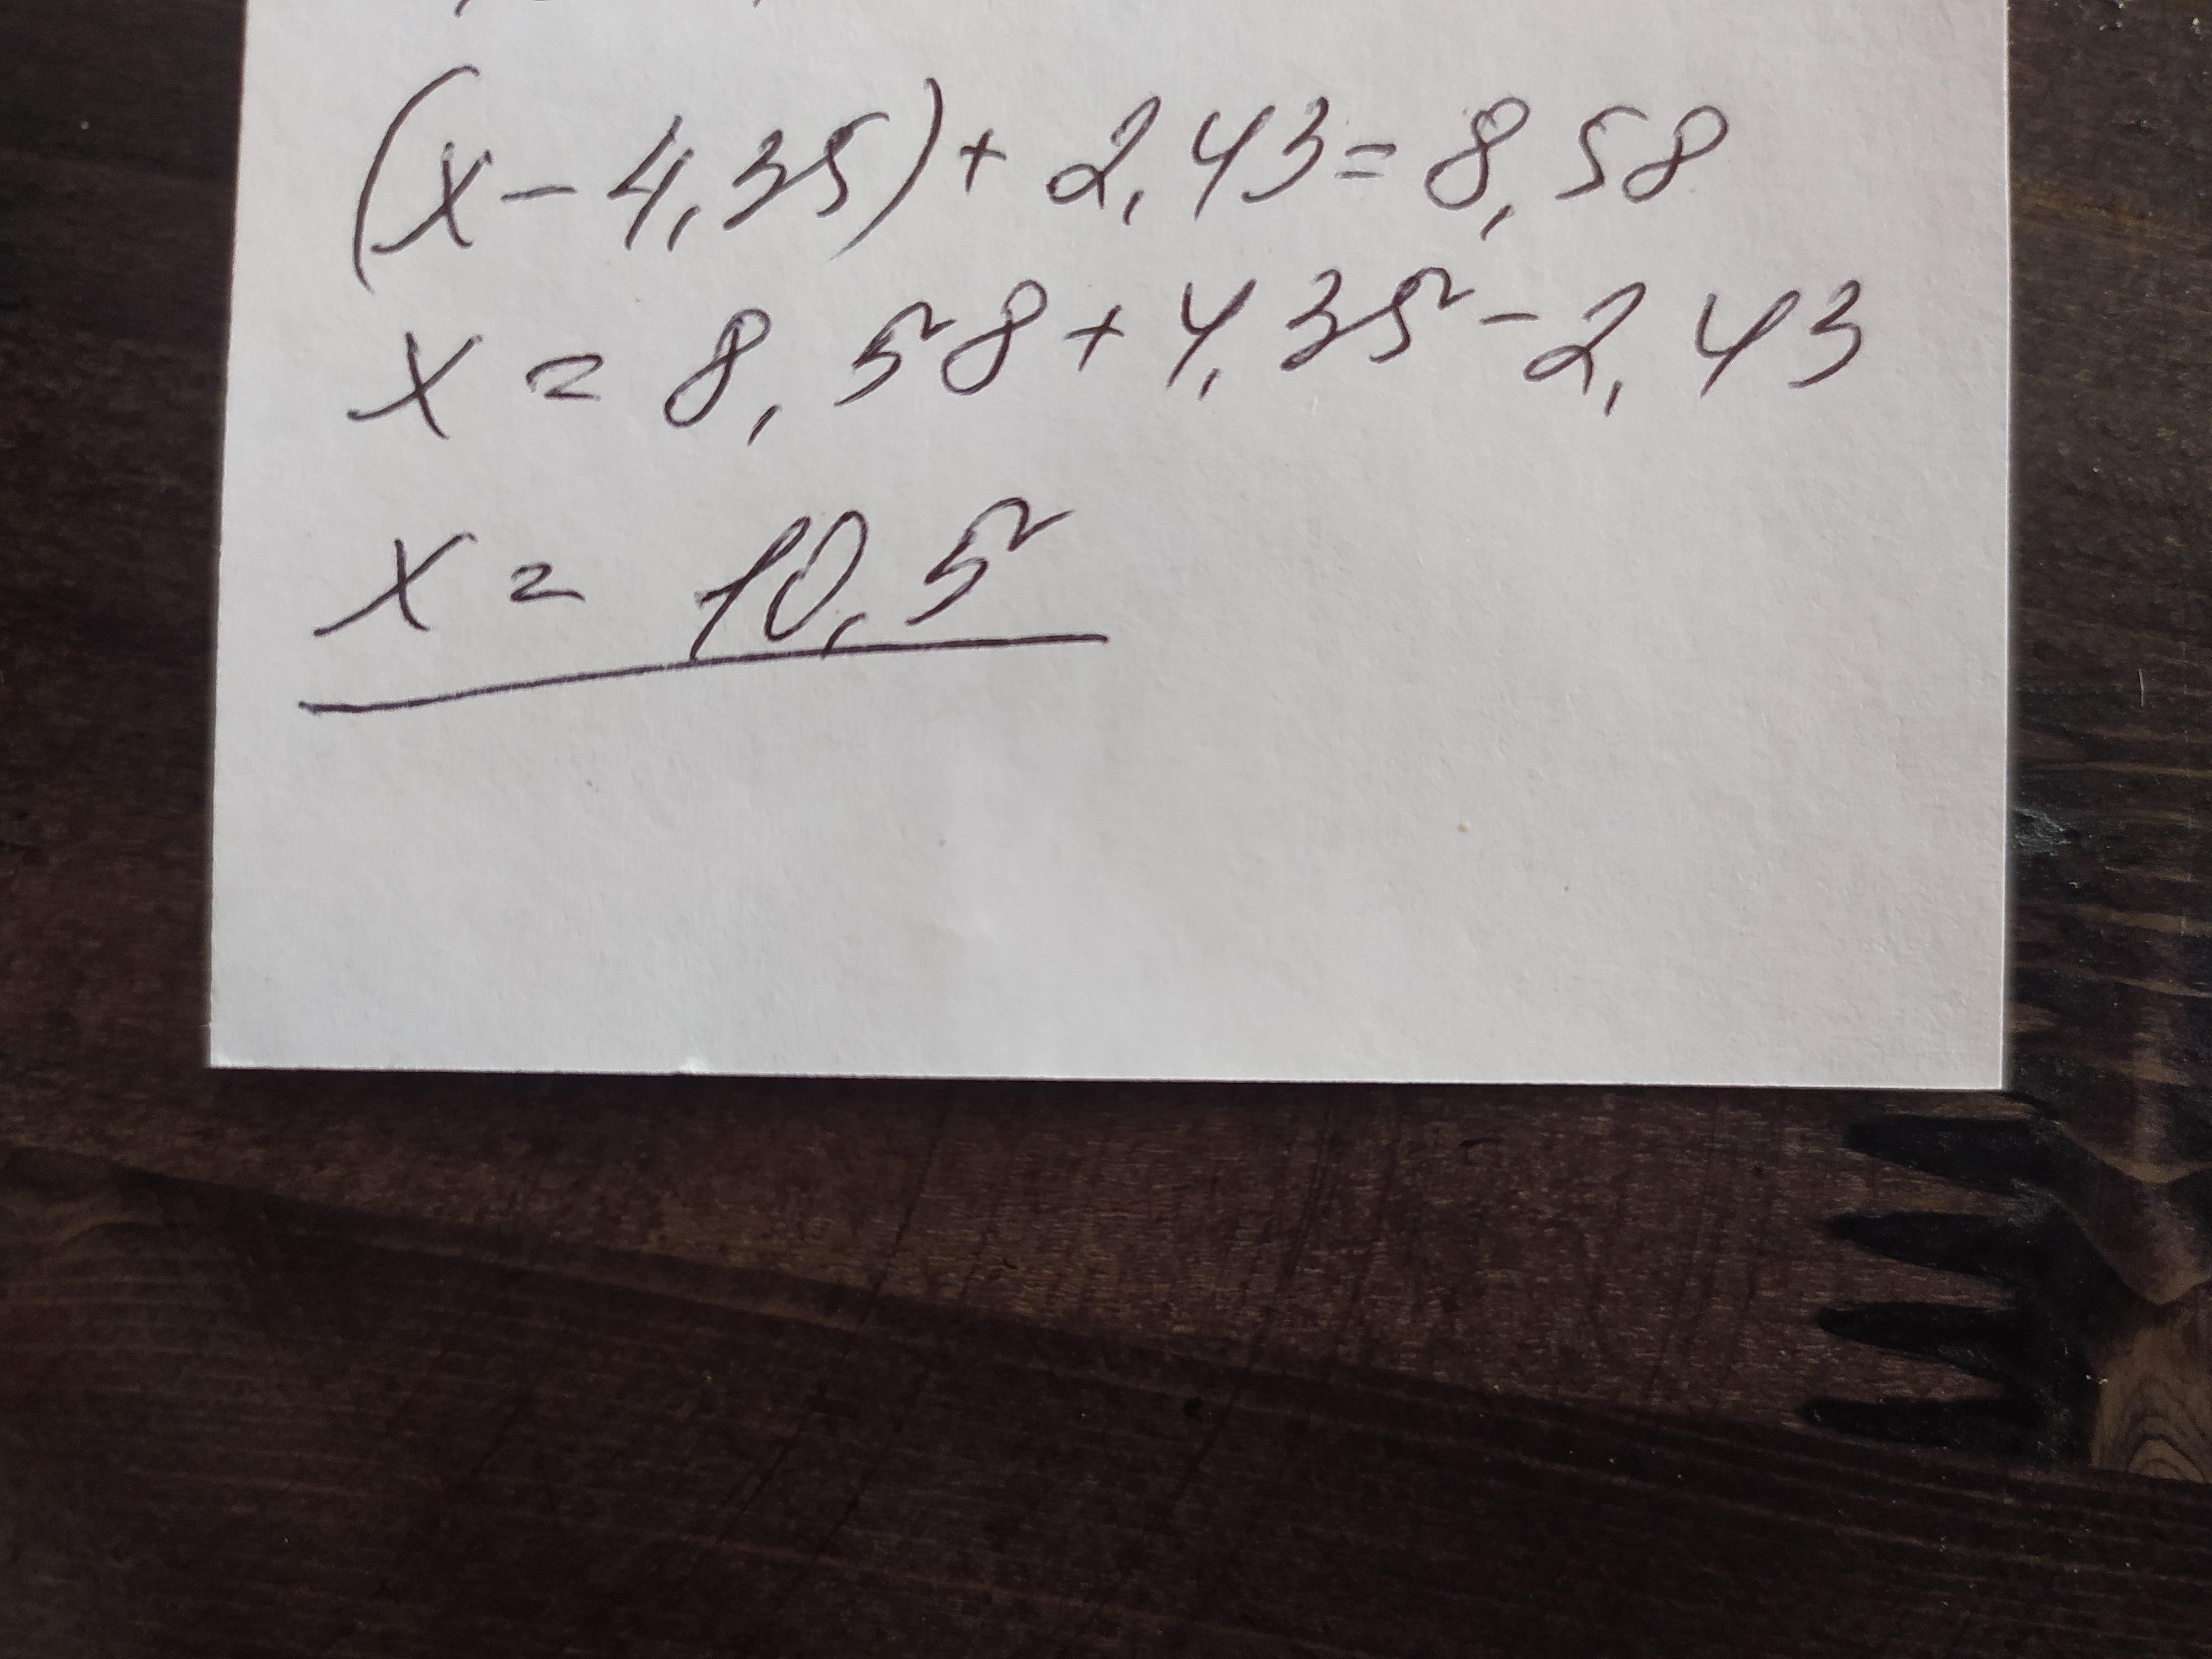 (x-4,35)+2,43=8,58
x=8,58+4,35-2,43
x=10,5